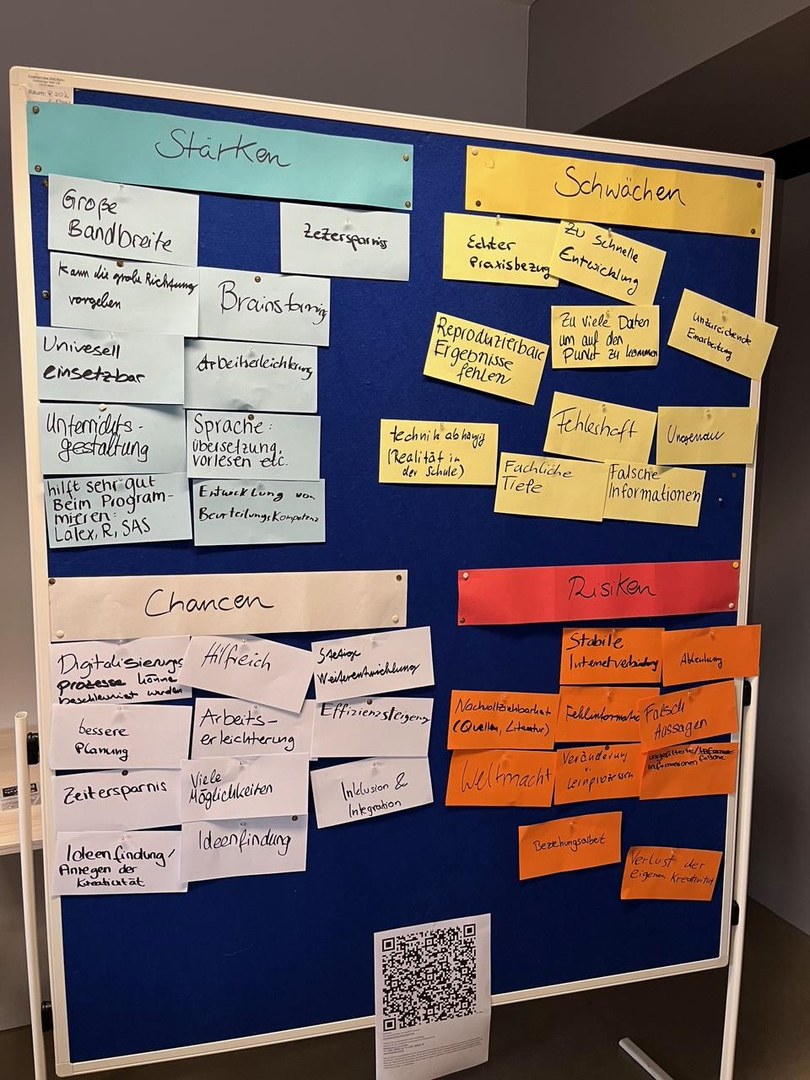 Raum: R 202
Stärken
Große
Bandbreite
Zeitersparniss
Kann die große Richtung
vorgeben
Brainstorming
Univesell
einsetzbar
Arbeitserleichterung
Unterrichts-
gestaltung
Sprache:
übersetzung,
vorlesen etc.
hilft sehr gut
Beim Program-
mieren:
Latex, R, SAS
Entwicklung von
Beurteilungskompetenz
Schwächen
Echter
Praxisbezug
Zu schnelle
Entwicklung
Reproduzierbare
Ergebnisse
fehlen
Zu viele Daten
um auf den
Punkt zu kommen
Unzureichende
Einarbeitung
technik abhängig
(Realität in
der Schule)
Fehlerhaft
Ungenau
Fachliche
Tiefe
Falsche
Informationen
Chancen
Digitalisierungs
prozesse können
beschleunigt werden
Hilfreich
Stetige
Weiterentwicklung
bessere
Planung
Arbeits-
erleichterung
Effizienzsteigerung
Zeitersparnis
Viele
Möglichkeiten
Inklusion &
Integration
Ideenfindung/
Anregen der
Kreativität
Ideenfindung
Risiken
Stabile
Internetverbindung
Ablenkung
Nachvollziehbarkeit
(Quellen, Literatur)
Fehlinformation
Falsch
Aussagen
Weltmacht
Veränderung
Informationen
Beziehungsarbeit
Verlust der
eigenen Kreativität